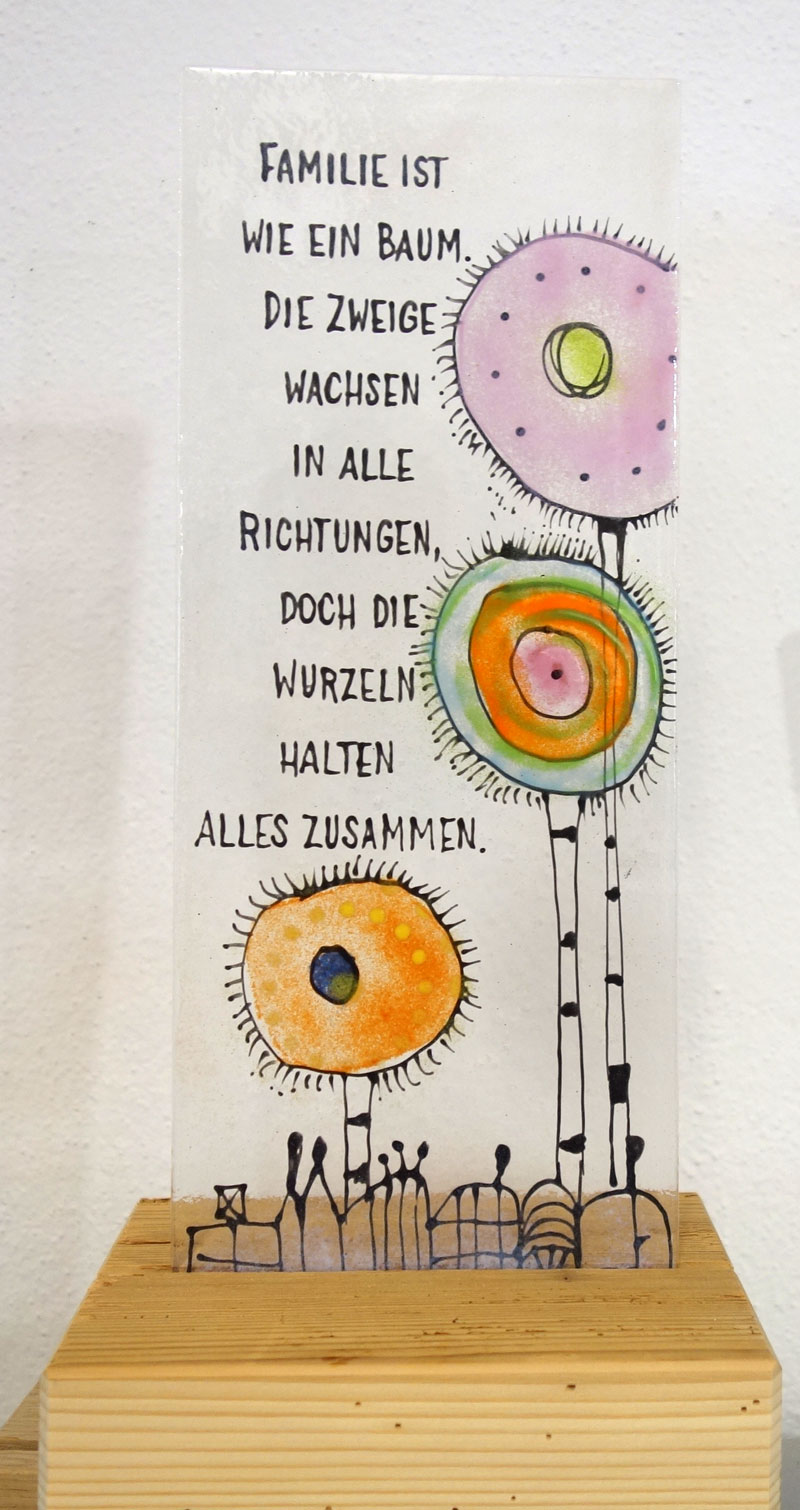 FAMILIE IST
WIE EIN BAUM.
DIE ZWEIGE
WACHSEN
IN ALLE
RICHTUNGEN,
DOCH DIE
WURZELN
HALTEN
ALLES ZUSAMMEN.